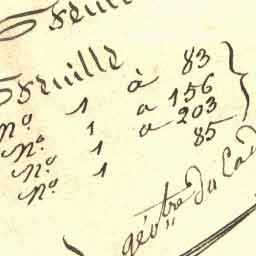 Feuille
Nº 1 à 83
Nº 1 a 156
Nº 1 a 203
Nº 1 85
géotre du Cad